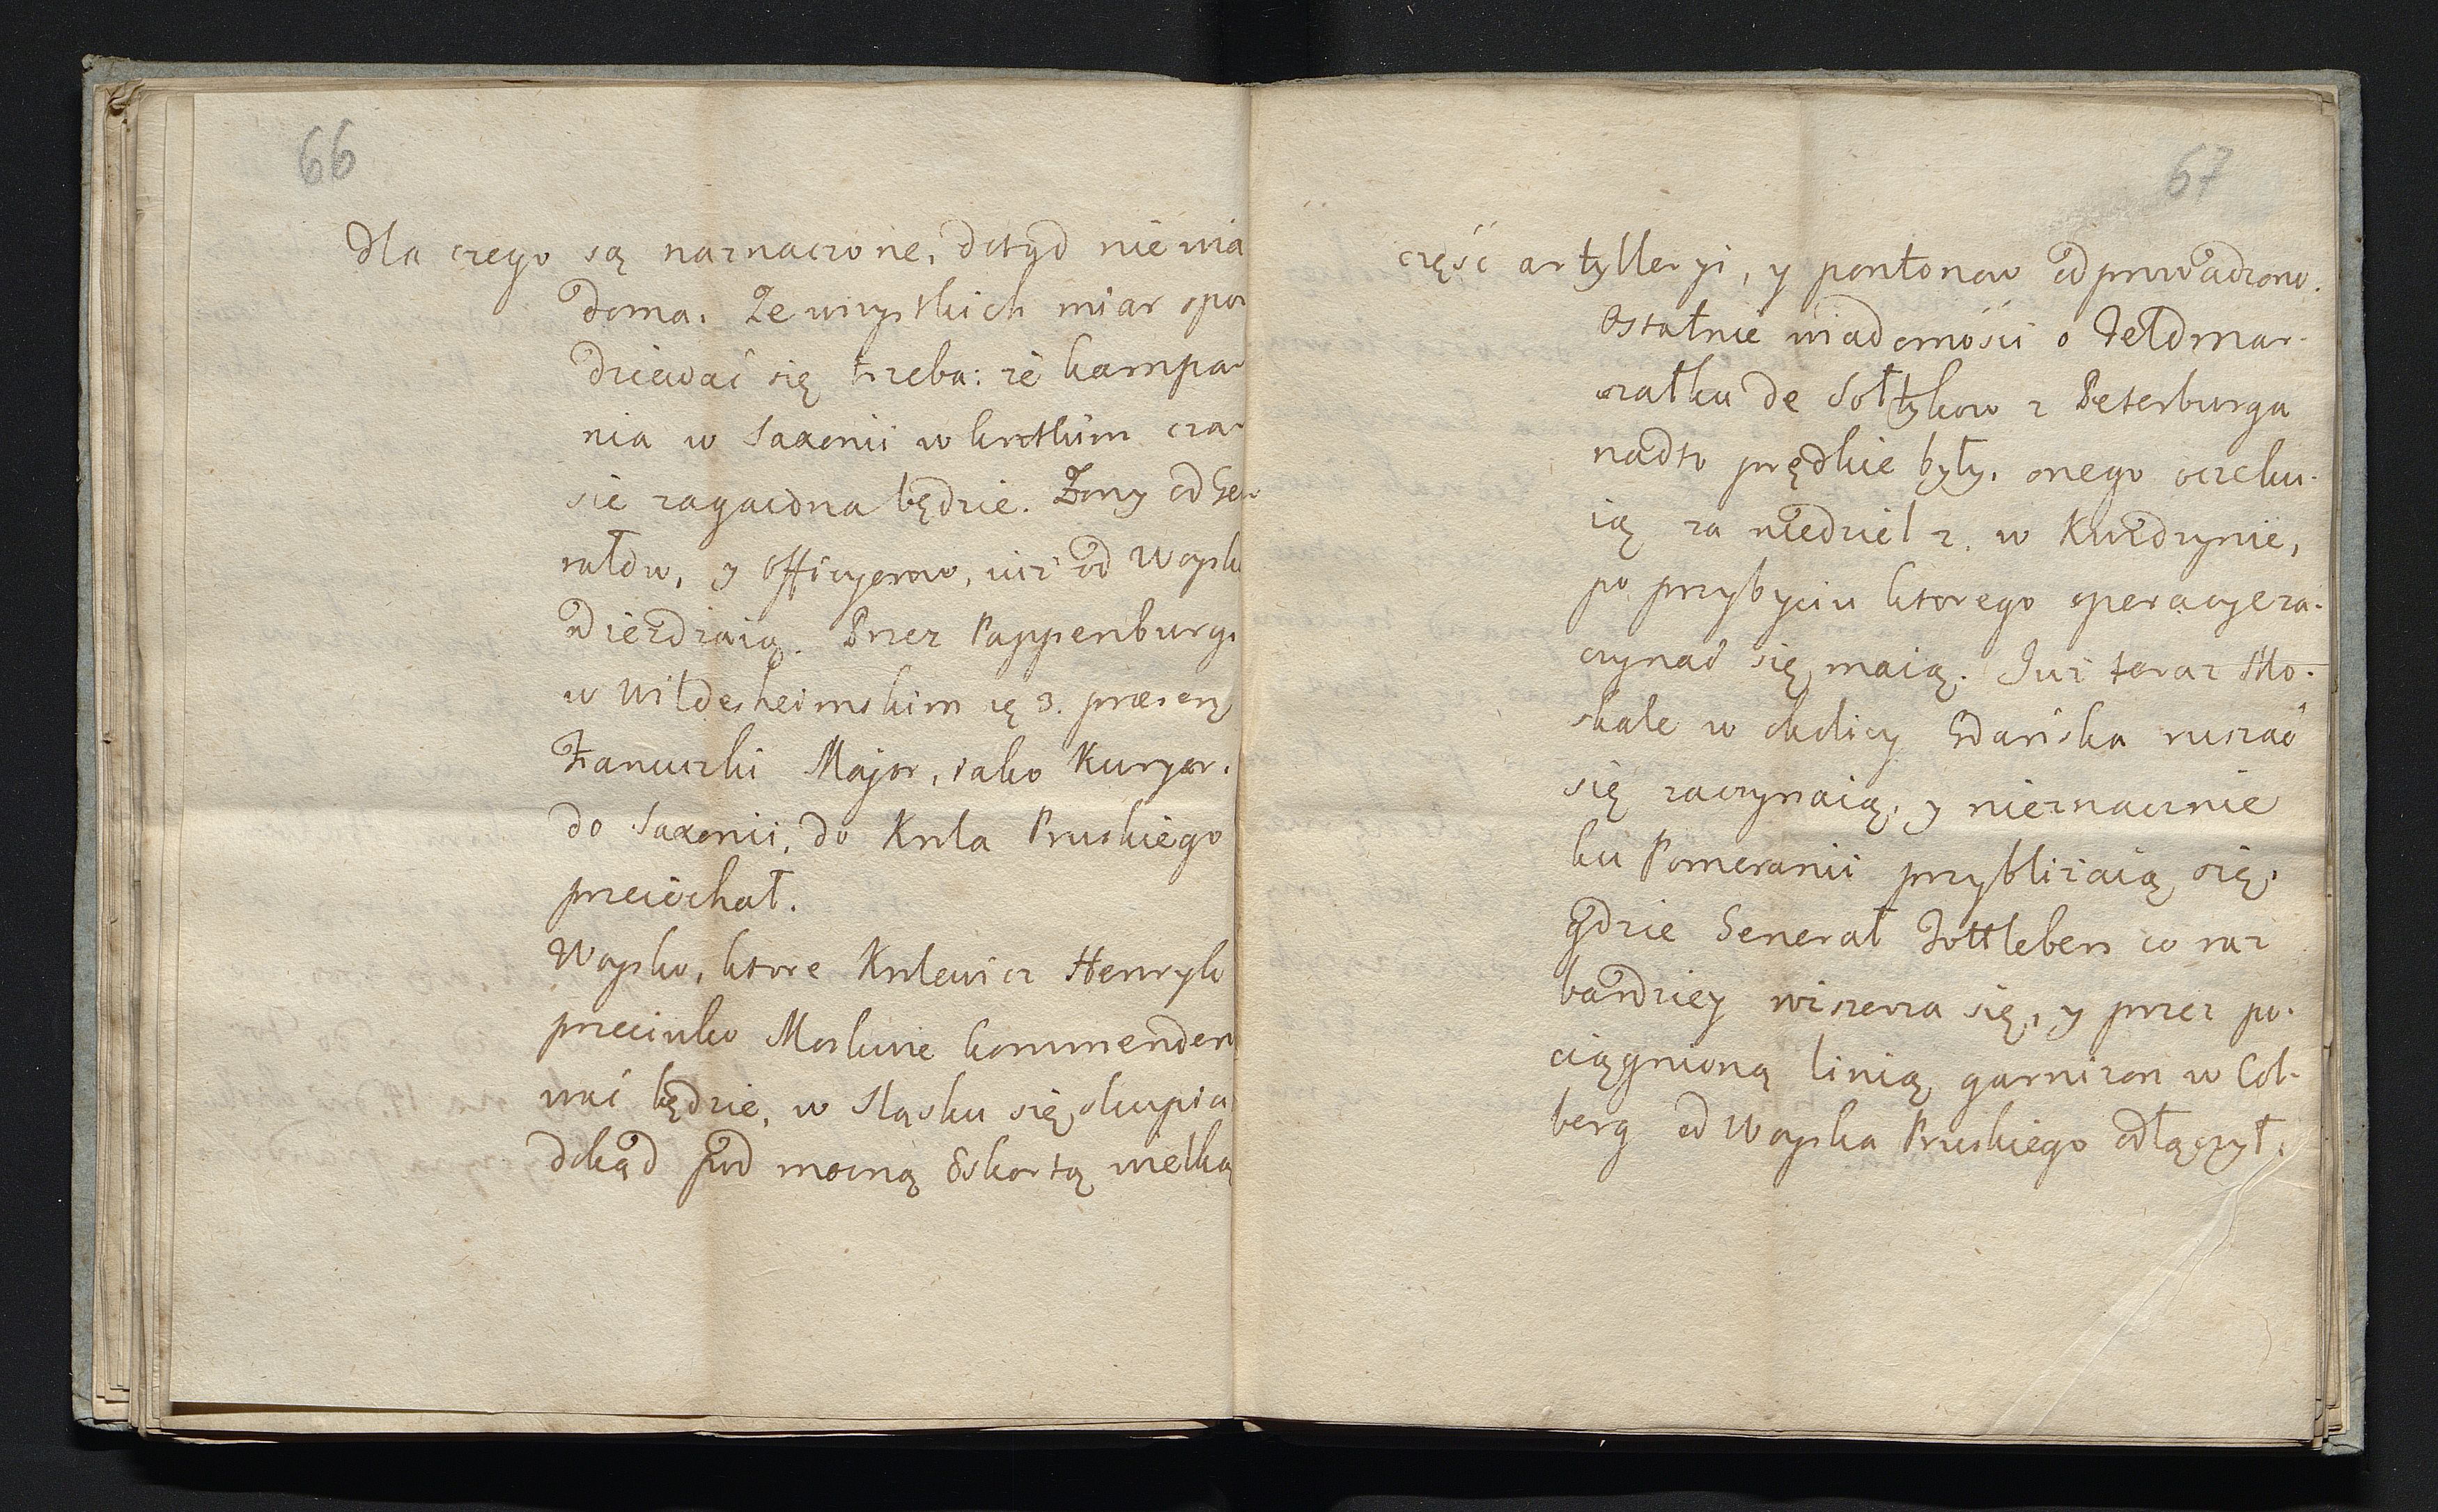 66
Dla czego są naznaczone, dotąd nie wia
doma. Ze wszystkich miar spo
dziewać się trzeba: że kampa
nia w Saxonii w krotkim cza
sie zagaiona będzie. Zony od Ge
rałow, y Officyerow, iuż od Woysk
odieżdzaią. Przez Pappenburg
w Wildesheimskim 3. præsen
Zanuczki Major, iako Kuryer.
do Saxonii, do Krola Pruskiego
przeiechał.
Woysko, ktore Krolewicz Henryk
przeciwko Moskwie kommendero
wać będzie, w Sląsku się skupia
dokąd pod mocną Eskortą wielką
67
część artylleryi, y pontonow odprowadzono.
Ostatnie wiadomości o Feldmar-
szałku de Sołtykow z Petersburga
nadto prędkie były. onego oczeku-
ią za niedziel 2. w Kwidzynie,
po przybyciu ktorego operacye za-
czynać się maią. Iuż teraz Mo-
skale w okolicy Gdańska ruszać
się zaczynaią, y nieznacznie
ku Pomeranii przybliżaią się,
gdzie Generał Tottleben co raz
bardziey rozszerza się, y przez po-
ciągnioną linią garnizon w Col-
berg od Woyska Pruskiego odłączył.